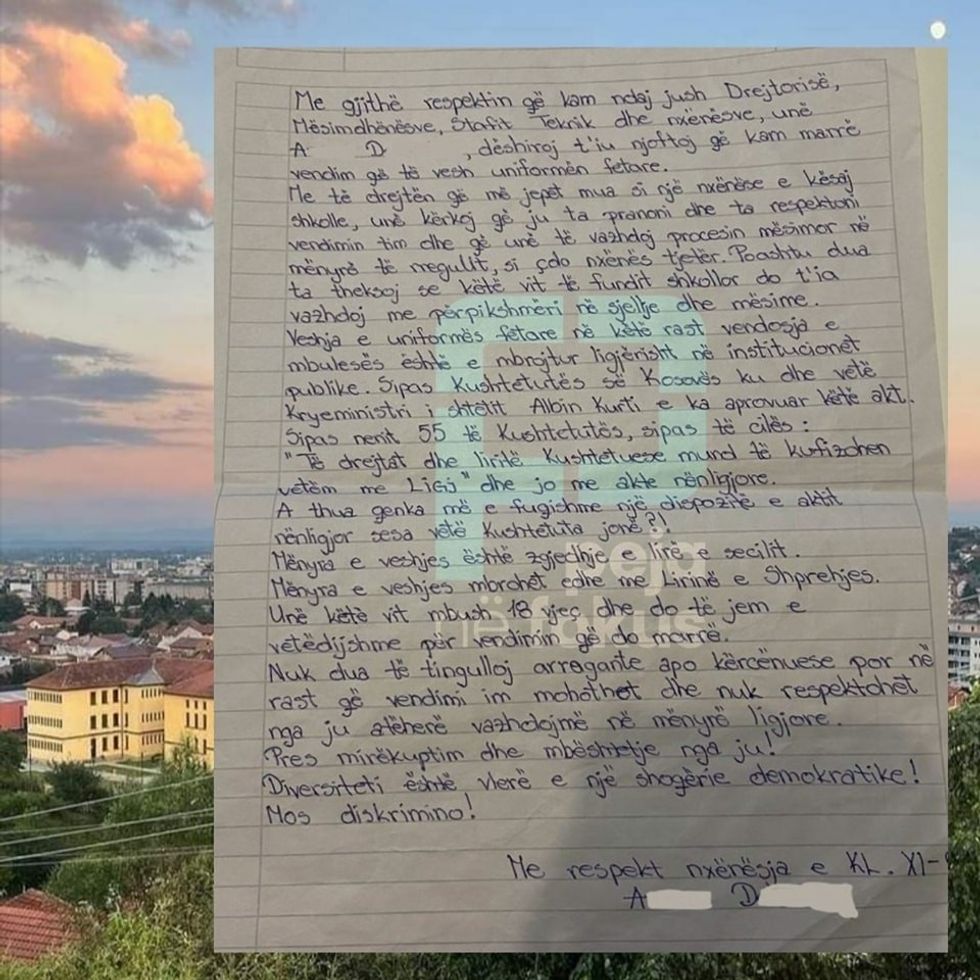 Me gjithë respektin që kam ndaj jush Drejtorisë,
Mësimdhënësve, Stafit Teknik dhe nxënësve, unë
A D , dëshiroj t'iu njoftoj që kam marrë
vendim që të vesh uniformën fetare.
Me të drejtën që më jepët mua si një nxënëse e kësaj
shkolle, unë kërkoj që ju ta pranoni dhe ta respektoni
vendimin tim dhe që unë të vazhdoj procesin mësimor në
mënyrë të rregullt, si çdo nxënës tjetër. Poashtu dua
ta theksoj se këtë vit të fundit shkollor do t'ia
vazhdoj me përpikshmëri në sjellje dhe mësime.
Veshja e uniformës fetare në këtë rast vendosja e
mbulesës është e mbrojtur ligjërisht në institucionet
publike. Sipas Kushtetutës së Kosovës ku dhe vetë
Kryeministri i shtetit Albin Kurti e ka aprovuar këtë akt.
Sipas nenit 55 të Kushtetutës, sipas të cilës:
"Të drejtat dhe liritë Kushtetuese mund të kufizohen
vetëm me Ligj" dhe jo me akte nënligjore.
A thua qenka më e fuqishme një dispozitë e aktit
nënligjor sesa vetë Kushtetuta jonë?!
Mënyra e veshjes është zgjedhje e lirë e secilit.
Mënyra e veshjes mbrohet edhe me Lirinë e Shprehjes.
Unë këtë vit mbush 18 vjeç dhe do të jem e
vetëdijshme për vendimin që do marrë.
Nuk dua të tingulloj arrogante apo kërcënuese por në
rast që vendimi im mohohet dhe nuk respektohet
nga ju atëherë vazhdojmë në mënyrë ligjore.
Pres mirëkuptim dhe mbështetje nga ju!
Diversiteti është vlerë e një shoqërie demokratike!
Mos diskrimino!
Me respekt nxënësja e KL. XI-
A D
peja
në fokus